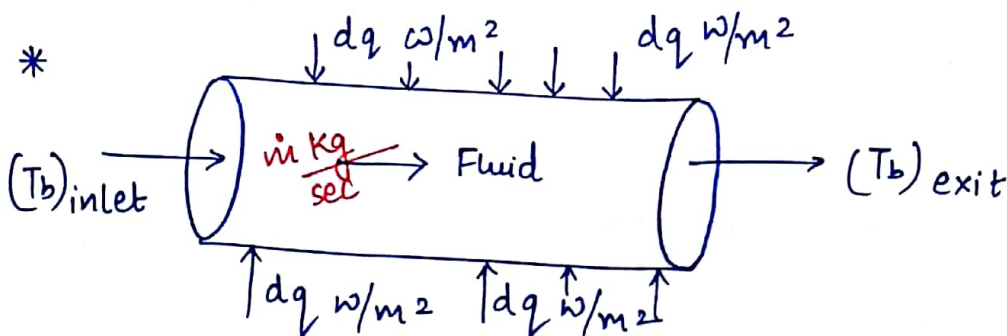 *
dq w/m²
dq w/m²
(Tb)inlet
ṁ Kg/sec
Fluid
(Tb) exit
dq w/m²
dq w/m²